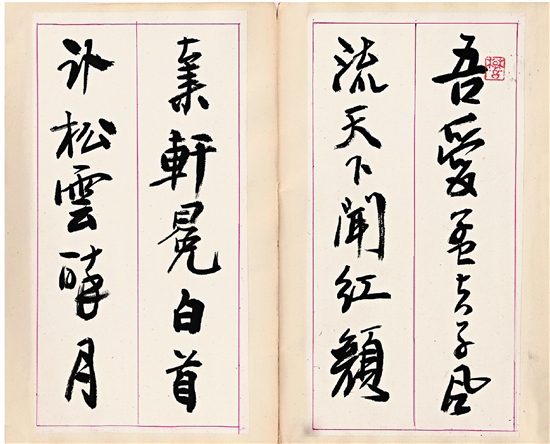 吾愛孟夫子風
流天下聞紅顏
棄軒冕白首
卧松雲醉月